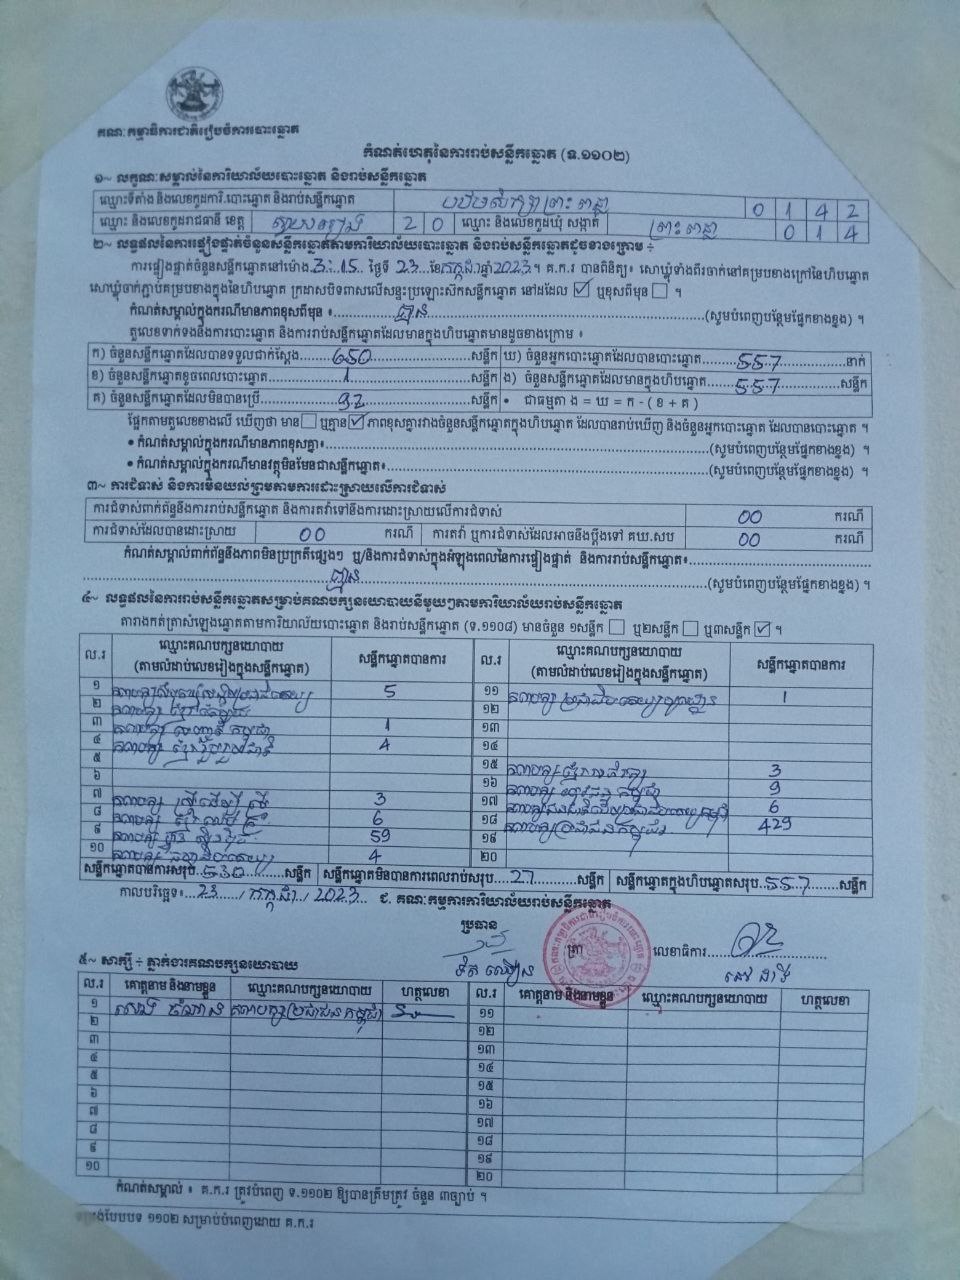 គណៈកម្មាធិការជាតិរៀបចំការបោះឆ្នោត
កំណត់ហេតុនៃការរាប់សន្លឹកឆ្នោត (ទ.១១០២)
១~ លក្ខណៈសម្គាល់នៃការិយាល័យបោះឆ្នោត និងរាប់សន្លឹកឆ្នោត
ឈ្មោះទីតាំង និងលេខកូដការិ.បោះឆ្នោត និងរាប់សន្លឹកឆ្នោត បឋមសិក្សា ព្រះពន្លា 0 1 4 2
ឈ្មោះ និងលេខកូដរាជធានី ខេត្ត ស្វាយរៀង 2 0 ឈ្មោះ និងលេខកូដឃុំ សង្កាត់ ព្រះពន្លា 0 1 4
២~ លទ្ធផលនៃការផ្ទៀងផ្ទាត់ចំនួនសន្លឹកឆ្នោតតាមការិយាល័យបោះឆ្នោត និងរាប់សន្លឹកឆ្នោតដូចខាងក្រោម ÷
ការផ្ទៀងផ្ទាត់ចំនួនសន្លឹកឆ្នោតនៅម៉ោង 3:15 ថ្ងៃទី 23 ខែកក្កដា ឆ្នាំ 2023។ គ.ក.រ បានពិនិត្យ៖ សោឃ្លុំទាំងពីរចាក់នៅគម្របខាងក្រៅនៃហិបឆ្នោត
សោឃ្លុំចាក់ភ្ជាប់គម្របខាងក្នុងនៃហិបឆ្នោត ក្រដាសបិទពាសលើសន្ទះប្រឡោះស៊កសន្លឹកឆ្នោត នៅដដែល ☑ ឬខុសពីមុន ☐ ។
កំណត់សម្គាល់ក្នុងករណីមានភាពខុសពីមុន ៖ គ្មាន (សូមបំពេញបន្ថែមផ្នែកខាងខ្នង) ។
តួលេខទាក់ទងនឹងការបោះឆ្នោត និងការរាប់សន្លឹកឆ្នោតដែលមានក្នុងហិបឆ្នោតមានដូចខាងក្រោម ៖
ក) ចំនួនសន្លឹកឆ្នោតដែលបានទទួលជាក់ស្តែង 650 សន្លឹក ឃ) ចំនួនអ្នកបោះឆ្នោតដែលបានបោះឆ្នោត 557 នាក់
ខ) ចំនួនសន្លឹកឆ្នោតខូចពេលបោះឆ្នោត 1 សន្លឹក ង) ចំនួនសន្លឹកឆ្នោតដែលមានក្នុងហិបឆ្នោត 557 សន្លឹក
គ) ចំនួនសន្លឹកឆ្នោតដែលមិនបានប្រើ 92 សន្លឹក • ជាធម្មតា ង = ឃ = ក - ( ខ + គ )
ផ្អែកតាមតួលេខខាងលើ ឃើញថា មាន ☐ ឬគ្មាន ☑ ភាពខុសគ្នារវាងចំនួនសន្លឹកឆ្នោតក្នុងហិបឆ្នោត ដែលបានរាប់ឃើញ និងចំនួនអ្នកបោះឆ្នោត ដែលបានបោះឆ្នោត ។
• កំណត់សម្គាល់ក្នុងករណីមានភាពខុសគ្នា៖ (សូមបំពេញបន្ថែមផ្នែកខាងខ្នង) ។
• កំណត់សម្គាល់ក្នុងករណីមានវត្ថុមិនមែនជាសន្លឹកឆ្នោត៖ (សូមបំពេញបន្ថែមផ្នែកខាងខ្នង) ។
៣~ ការជំទាស់ និងការមិនយល់ព្រមតាមការដោះស្រាយលើការជំទាស់
ការជំទាស់ពាក់ព័ន្ធនឹងការរាប់សន្លឹកឆ្នោត និងការតវ៉ាទៅនឹងការដោះស្រាយលើការជំទាស់ 00 ករណី
ការជំទាស់ដែលបានដោះស្រាយ 00 ករណី ការតវ៉ា ឬការជំទាស់ដែលអាចនឹងប្តឹងទៅ គឃ.សប 00 ករណី
កំណត់សម្គាល់ពាក់ព័ន្ធនឹងភាពមិនប្រក្រតីផ្សេងៗ ឬ/និងការជំទាស់ក្នុងអំឡុងពេលនៃការផ្ទៀងផ្ទាត់ និងការរាប់សន្លឹកឆ្នោត៖
គ្មាន (សូមបំពេញបន្ថែមផ្នែកខាងខ្នង) ។
៤~ លទ្ធផលនៃការរាប់សន្លឹកឆ្នោតសម្រាប់គណបក្សនយោបាយនីមួយៗតាមការិយាល័យរាប់សន្លឹកឆ្នោត
តារាងកត់ត្រាសំឡេងឆ្នោតតាមការិយាល័យបោះឆ្នោត និងរាប់សន្លឹកឆ្នោត (ទ.១១០៨) មានចំនួន ១សន្លឹក ☐ ឬ២សន្លឹក ☐ ឬ៣សន្លឹក ☑ ។
ល.រ ឈ្មោះគណបក្សនយោបាយ (តាមលំដាប់លេខរៀងក្នុងសន្លឹកឆ្នោត) សន្លឹកឆ្នោតបានការ ល.រ ឈ្មោះគណបក្សនយោបាយ (តាមលំដាប់លេខរៀងក្នុងសន្លឹកឆ្នោត) សន្លឹកឆ្នោតបានការ
១ 5 ១១ គណបក្ស 1
២ គណបក្ស ១២
៣ គណបក្ស 1 ១៣
៤ គណបក្ស 4 ១៤
៥ ១៥ គណបក្ស 3
៦ ១៦ គណបក្ស 9
៧ គណបក្ស 3 ១៧ 6
៨ គណបក្ស 6 ១៨ គណបក្សប្រជាជនកម្ពុជា 429
៩ គណបក្ស 59 ១៩
១០ គណបក្ស 4 ២០
សន្លឹកឆ្នោតបានការសរុប 530 សន្លឹក សន្លឹកឆ្នោតមិនបានការពេលរាប់សរុប 27 សន្លឹក សន្លឹកឆ្នោតក្នុងហិបឆ្នោតសរុប 557 សន្លឹក
កាលបរិច្ឆេទ៖ 23 / កក្កដា / 2023 ជ. គណៈកម្មការការិយាល័យរាប់សន្លឹកឆ្នោត
ប្រធាន ត្រា លេខាធិការ
៥~ សាក្សី ÷ ភ្នាក់ងារគណបក្សនយោបាយ
ល.រ គោត្តនាម និងនាមខ្លួន ឈ្មោះគណបក្សនយោបាយ ហត្ថលេខា ល.រ គោត្តនាម និងនាមខ្លួន ឈ្មោះគណបក្សនយោបាយ ហត្ថលេខា
១ គណបក្សប្រជាជនកម្ពុជា ១១
២ ១២
៣ ១៣
៤ ១៤
៥ ១៥
៦ ១៦
៧ ១៧
៨ ១៨
៩ ១៩
១០ ២០
កំណត់សម្គាល់ ៖ គ.ក.រ ត្រូវបំពេញ ទ.១១០២ ឱ្យបានត្រឹមត្រូវ ចំនួន ៣ច្បាប់ ។
បែបបទ ១១០២ សម្រាប់បំពេញដោយ គ.ក.រ